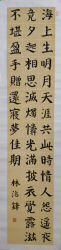 海上生明月天涯共此時情人怨遙夜
竟夕起相思滅燭憐光滿披衣覺露滋
不堪盈手贈還寢夢佳期 林